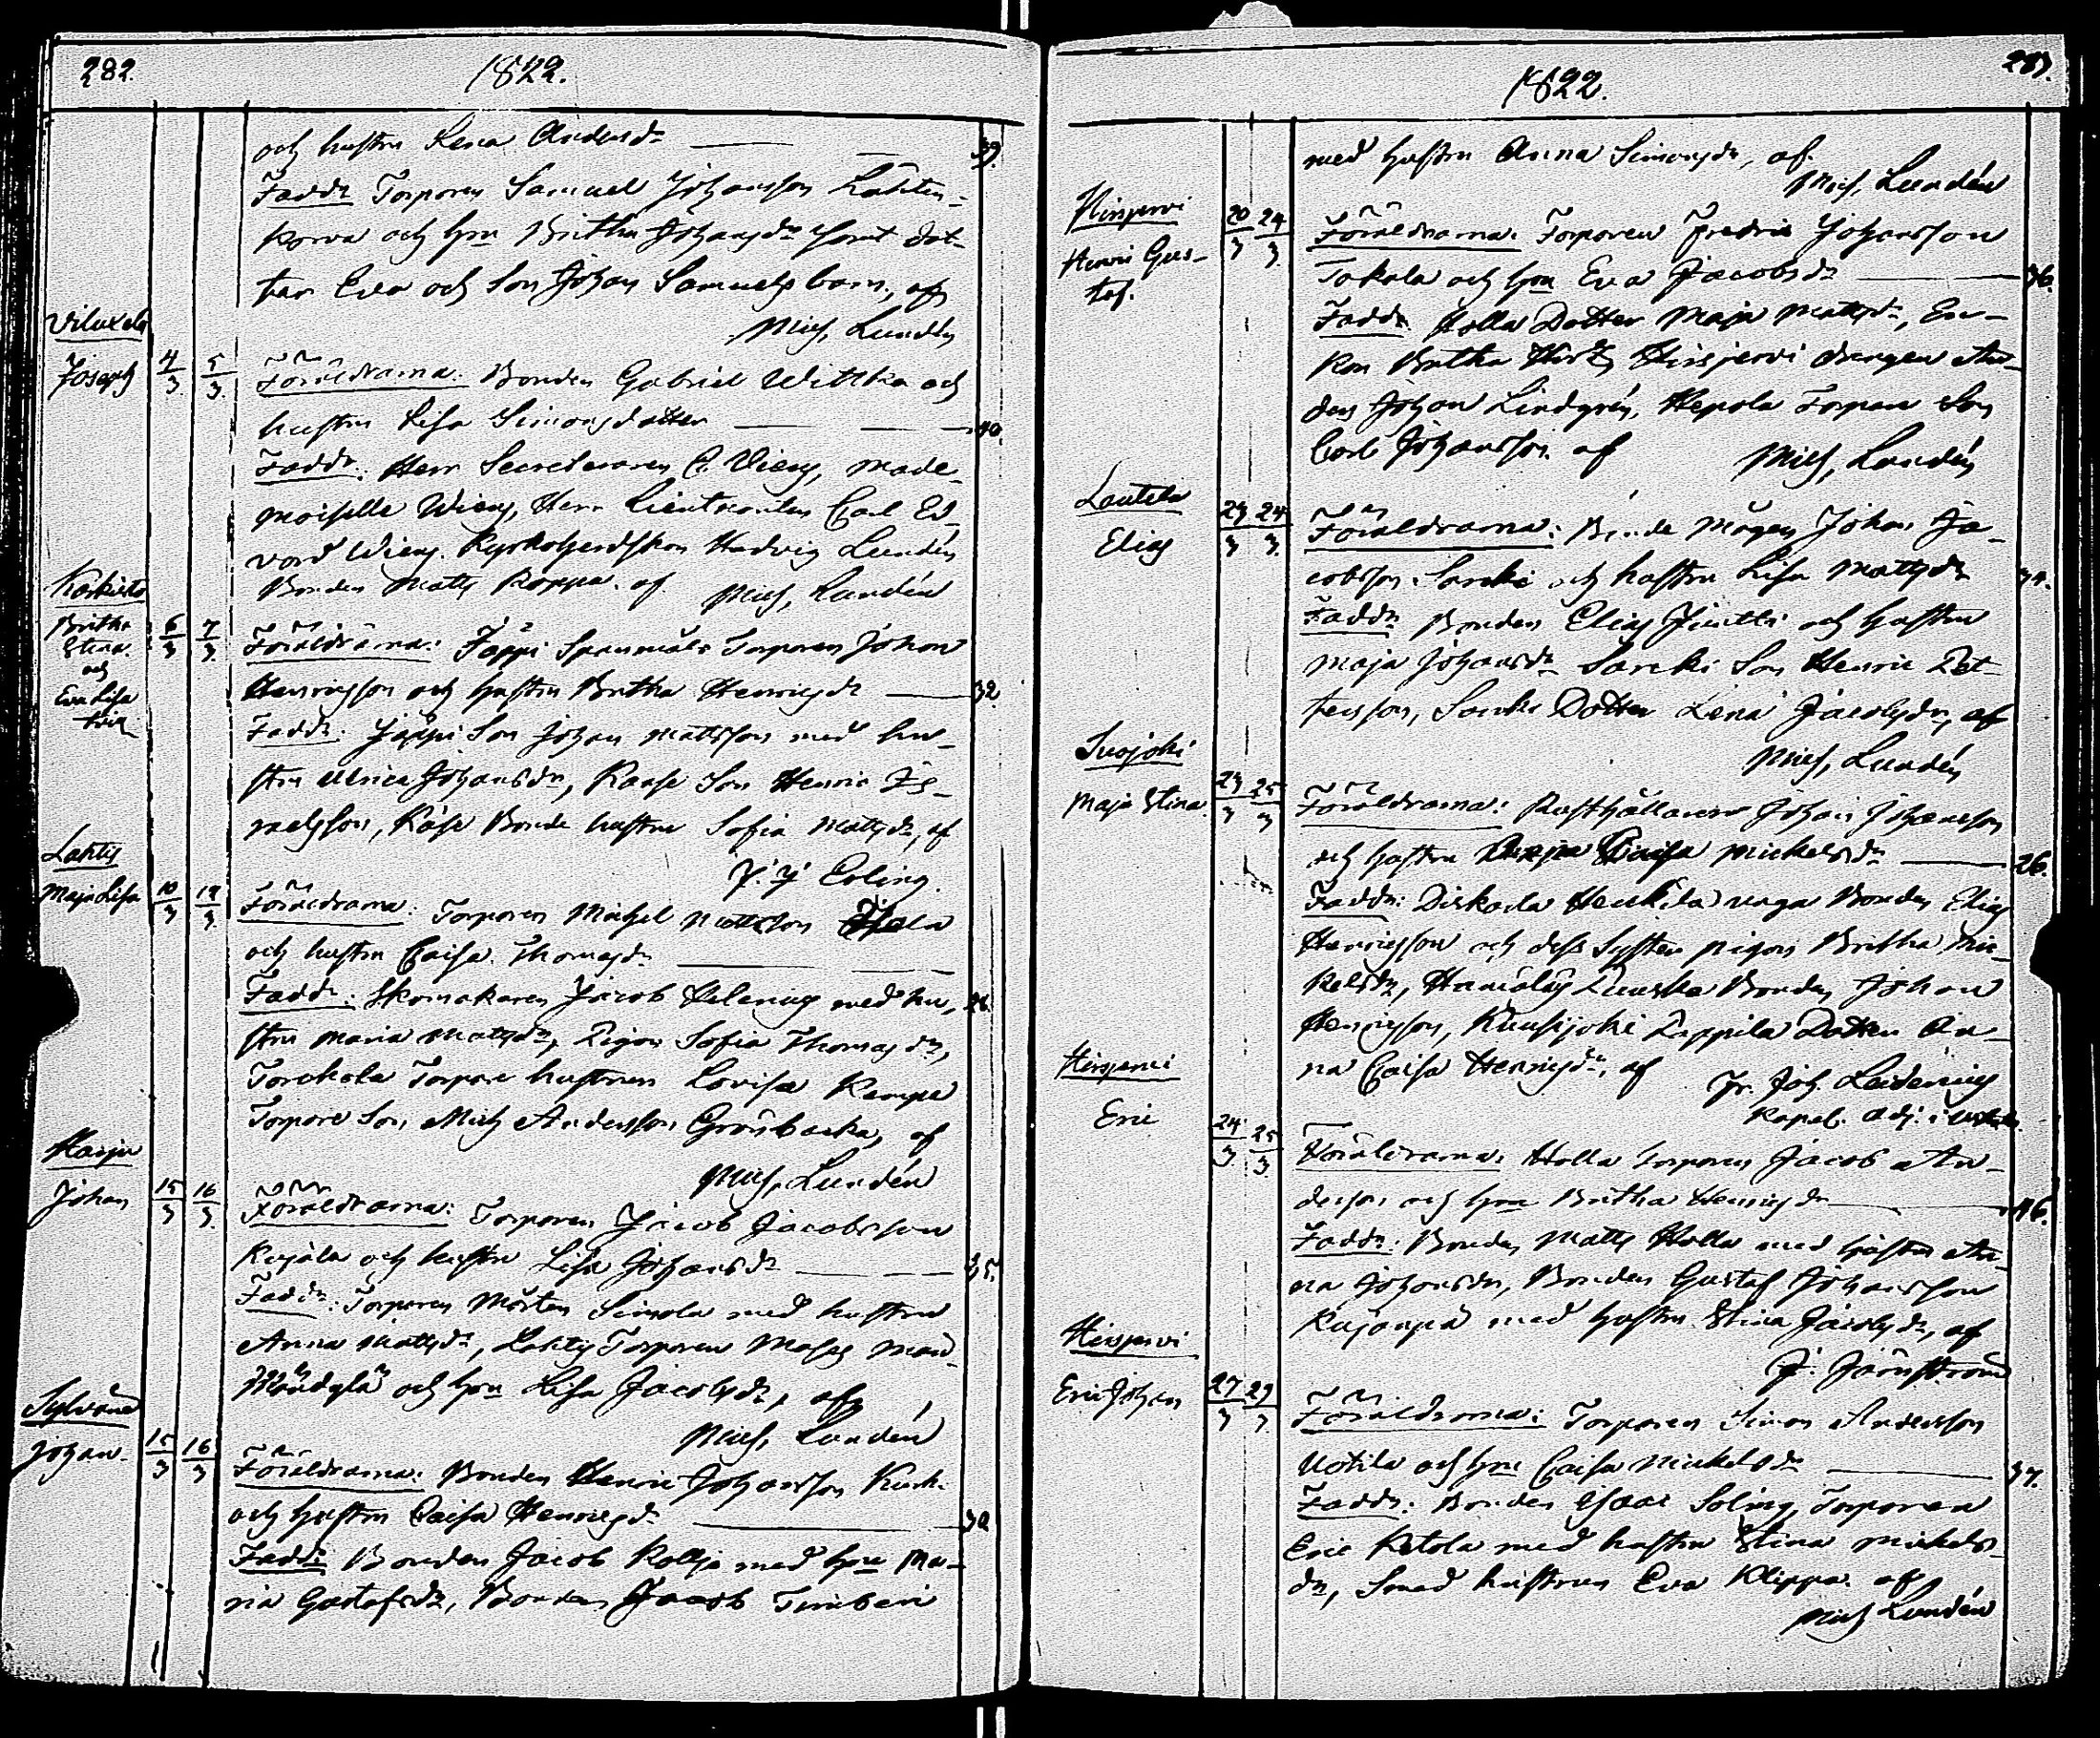 282.
1822.
och hustru Lena Andersdr 39.
Faddr Torparen Samuel Johansson Lahten-
korva och hru Britha Johansdr samt dot-
ter Eva och Son Johan Samuels barn, af
Mich. Lundén
Viluxela
Joseph 4/3 5/3 Föräldrarna: Bonden Gabriel Wittka och
hustru Lisa Simonsdotter 40.
Faddr: Herr Secreteraren C. Wieng, Made-
moiselle Wieng, Herr Lieutnanten Carl Ed-
vard Wieng. Kyrkoherdskan Hedvig Lundén
Bonden Matts Roppa. af Mich. Lundén
Karkisto
Britha Stina och Eva Lisa tvill. 6/3 7/3 Föräldrarna: Jäppi Spanmåls Torparen Johan
Henricsson och hustru Britha Henricsdr 32.
Faddr: Jäppi Son Johan Mattsson med hu-
stru Ulrica Johansdr, Raase Son Henric Is-
raelsson, Råse Bonde hustru Sofia Mattsdr, af
J. J. Erling.
Lahtis
Maja Lisa 10/3 Föräldrarna: Torparen Michel Mattsson
och hustru Caisa Thomasdr
Faddr: Skomakaren Jacob Helenius med hu-
stru Maria Mattsdr, Pigan Sofia Thomasdr,
Torckola Torpare hustrun Lovisa Kempe
Torpare Son Mich Andersson Grönbacka, af
Mich. Lundén
Harju
Johan 15/3 16/3 Föräldrarna: Torparen Jacob Jacobsson
Kujala och hustru Lisa Johansdr
Faddr: Torparen Mårten Simola med hustru
Anna Mattsdr, Lahtis Torparen Moses Män-
Mändylä och hru Lisa Jacobsdr, af
Mich. Lundén
Sylvänä
Johan. 15/3 16/3 Föräldrarna: Bonden Henric Johansson Kurki
och hustru Caisa Henricsdr
Faddr Bonden Jacob Kollja med hru Ma-
ria Gustafsdr, Bonden Jacob Timberi
283.
1822.
med hustru Anna Simonsdr, af.
Mich. Lundén
Hirsjervi
Henric Gus-
taf. 20/3 24/3 Föräldrarna: Torparen Fredric Johansson
Tokola och hru Eva Jacobsdr 36.
Faddr Holla Dotter Maja Mattsdr, En-
kan Britha Hirsjervi drengen An-
ders Johan Lindgrén, Hepola Torpare Son
Carl Johansson af Mich. Lundén
Lautela
Elias 23/3 24/3 Föräldrarna: Bonde Mågen Johan Ja-
cobsson Sarcki och hustru Lisa Mattsdr 34.
Faddr Bonden Elias Junttli och hustru
Maja Johansdr Sarcki Son Henric Pet-
tersson, Sarcki Dotter Lena Jacobsdr, af
Mich. Lundén
Suojoki
Maja Stina 23/3 25/3 Föräldrarna: Rusthållaren Johan Johansson
och hustru Caisa Mickelsdr 26.
Faddr: Diskarla Heickilä unga Bonden Elias
Henricsson och dess Syster pigan Britha Mic-
kelsdr, Hamälä Bonden Johan
Henricsson, Kuusijoki Pappila Dotter An-
na Caisa Henricsdr, af Fr. Joh. Leidenius
Kapel. adj. i
Hirsjervi
Eric 24/3 25/3 Föräldrarna: Holla Torparen Jacob An-
dersson och hru Britha Henricsdr 46.
Faddr: Bonden Matts Holla med hustru An-
na Johansdr, Bonden Gustaf Johansson
Kujanpä med hustru Stina Jacobsdr, af
J. Järnström
Hirsjervi
Eric Johan 27/3 29/3 Föräldrarna: Torparen Simon Andersson
Uotila och hru Caisa Mickelsdr 37.
Faddr: Bonden Isaac Soling, Torparen
Eric Ketola med hustru Stina Mickels-
dr, Smed hustrun Eva Klippa. af
Mich Lundén